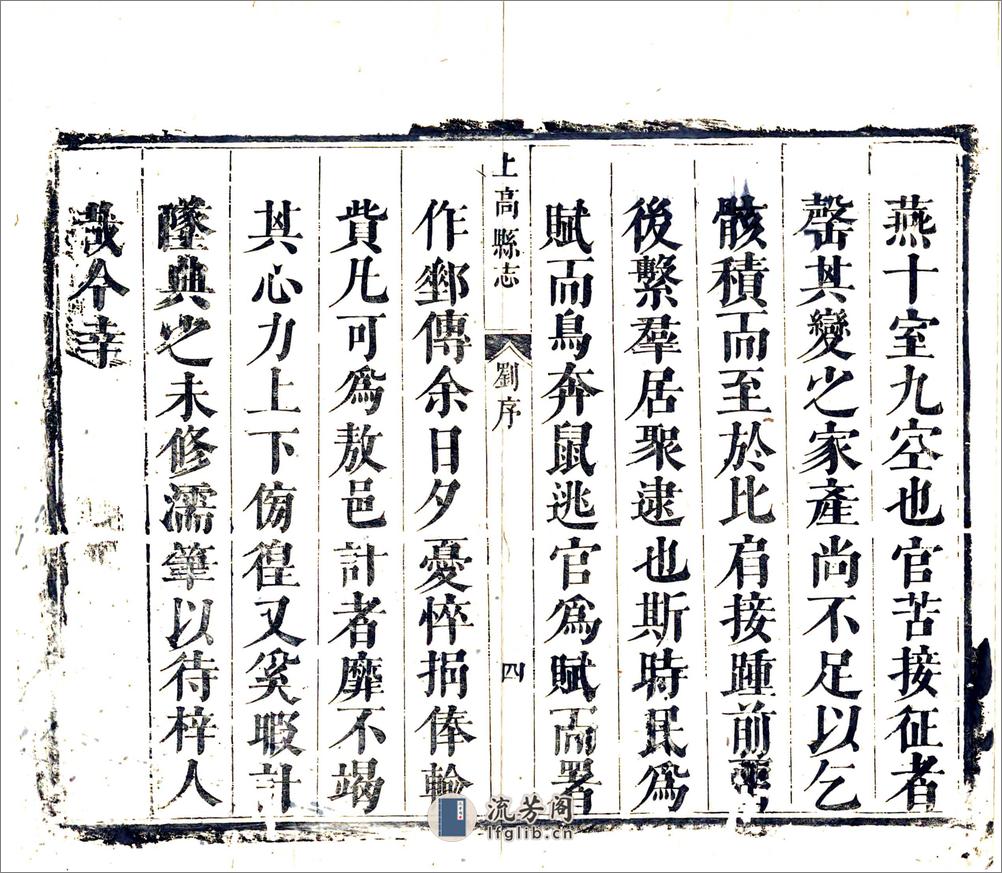 燕十室九空也官苦接征者
罄其變之家產尚不足以乞
骸積而至於比肩接踵前
後繫羣居聚逮也斯時民爲
賦而鳥奔鼠逃官爲賦而署
上高縣志
劉序
四
作郵傳余日夕憂悴捐俸輸
貲凡可爲敖邑計者靡不竭
其心力上下傍徨又奚暇計
墜典之未修濡筆以待梓人
哉今幸
流芳阁
lfglib.cn